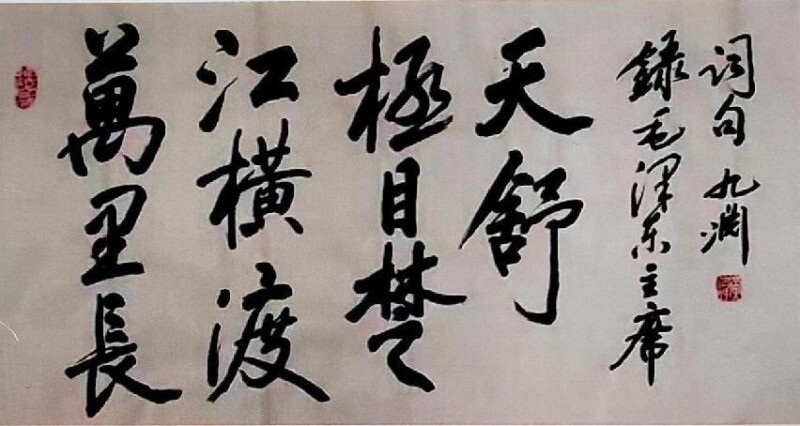 萬里長
江橫渡
極目楚
天舒
錄毛泽东主席
词句 九渊